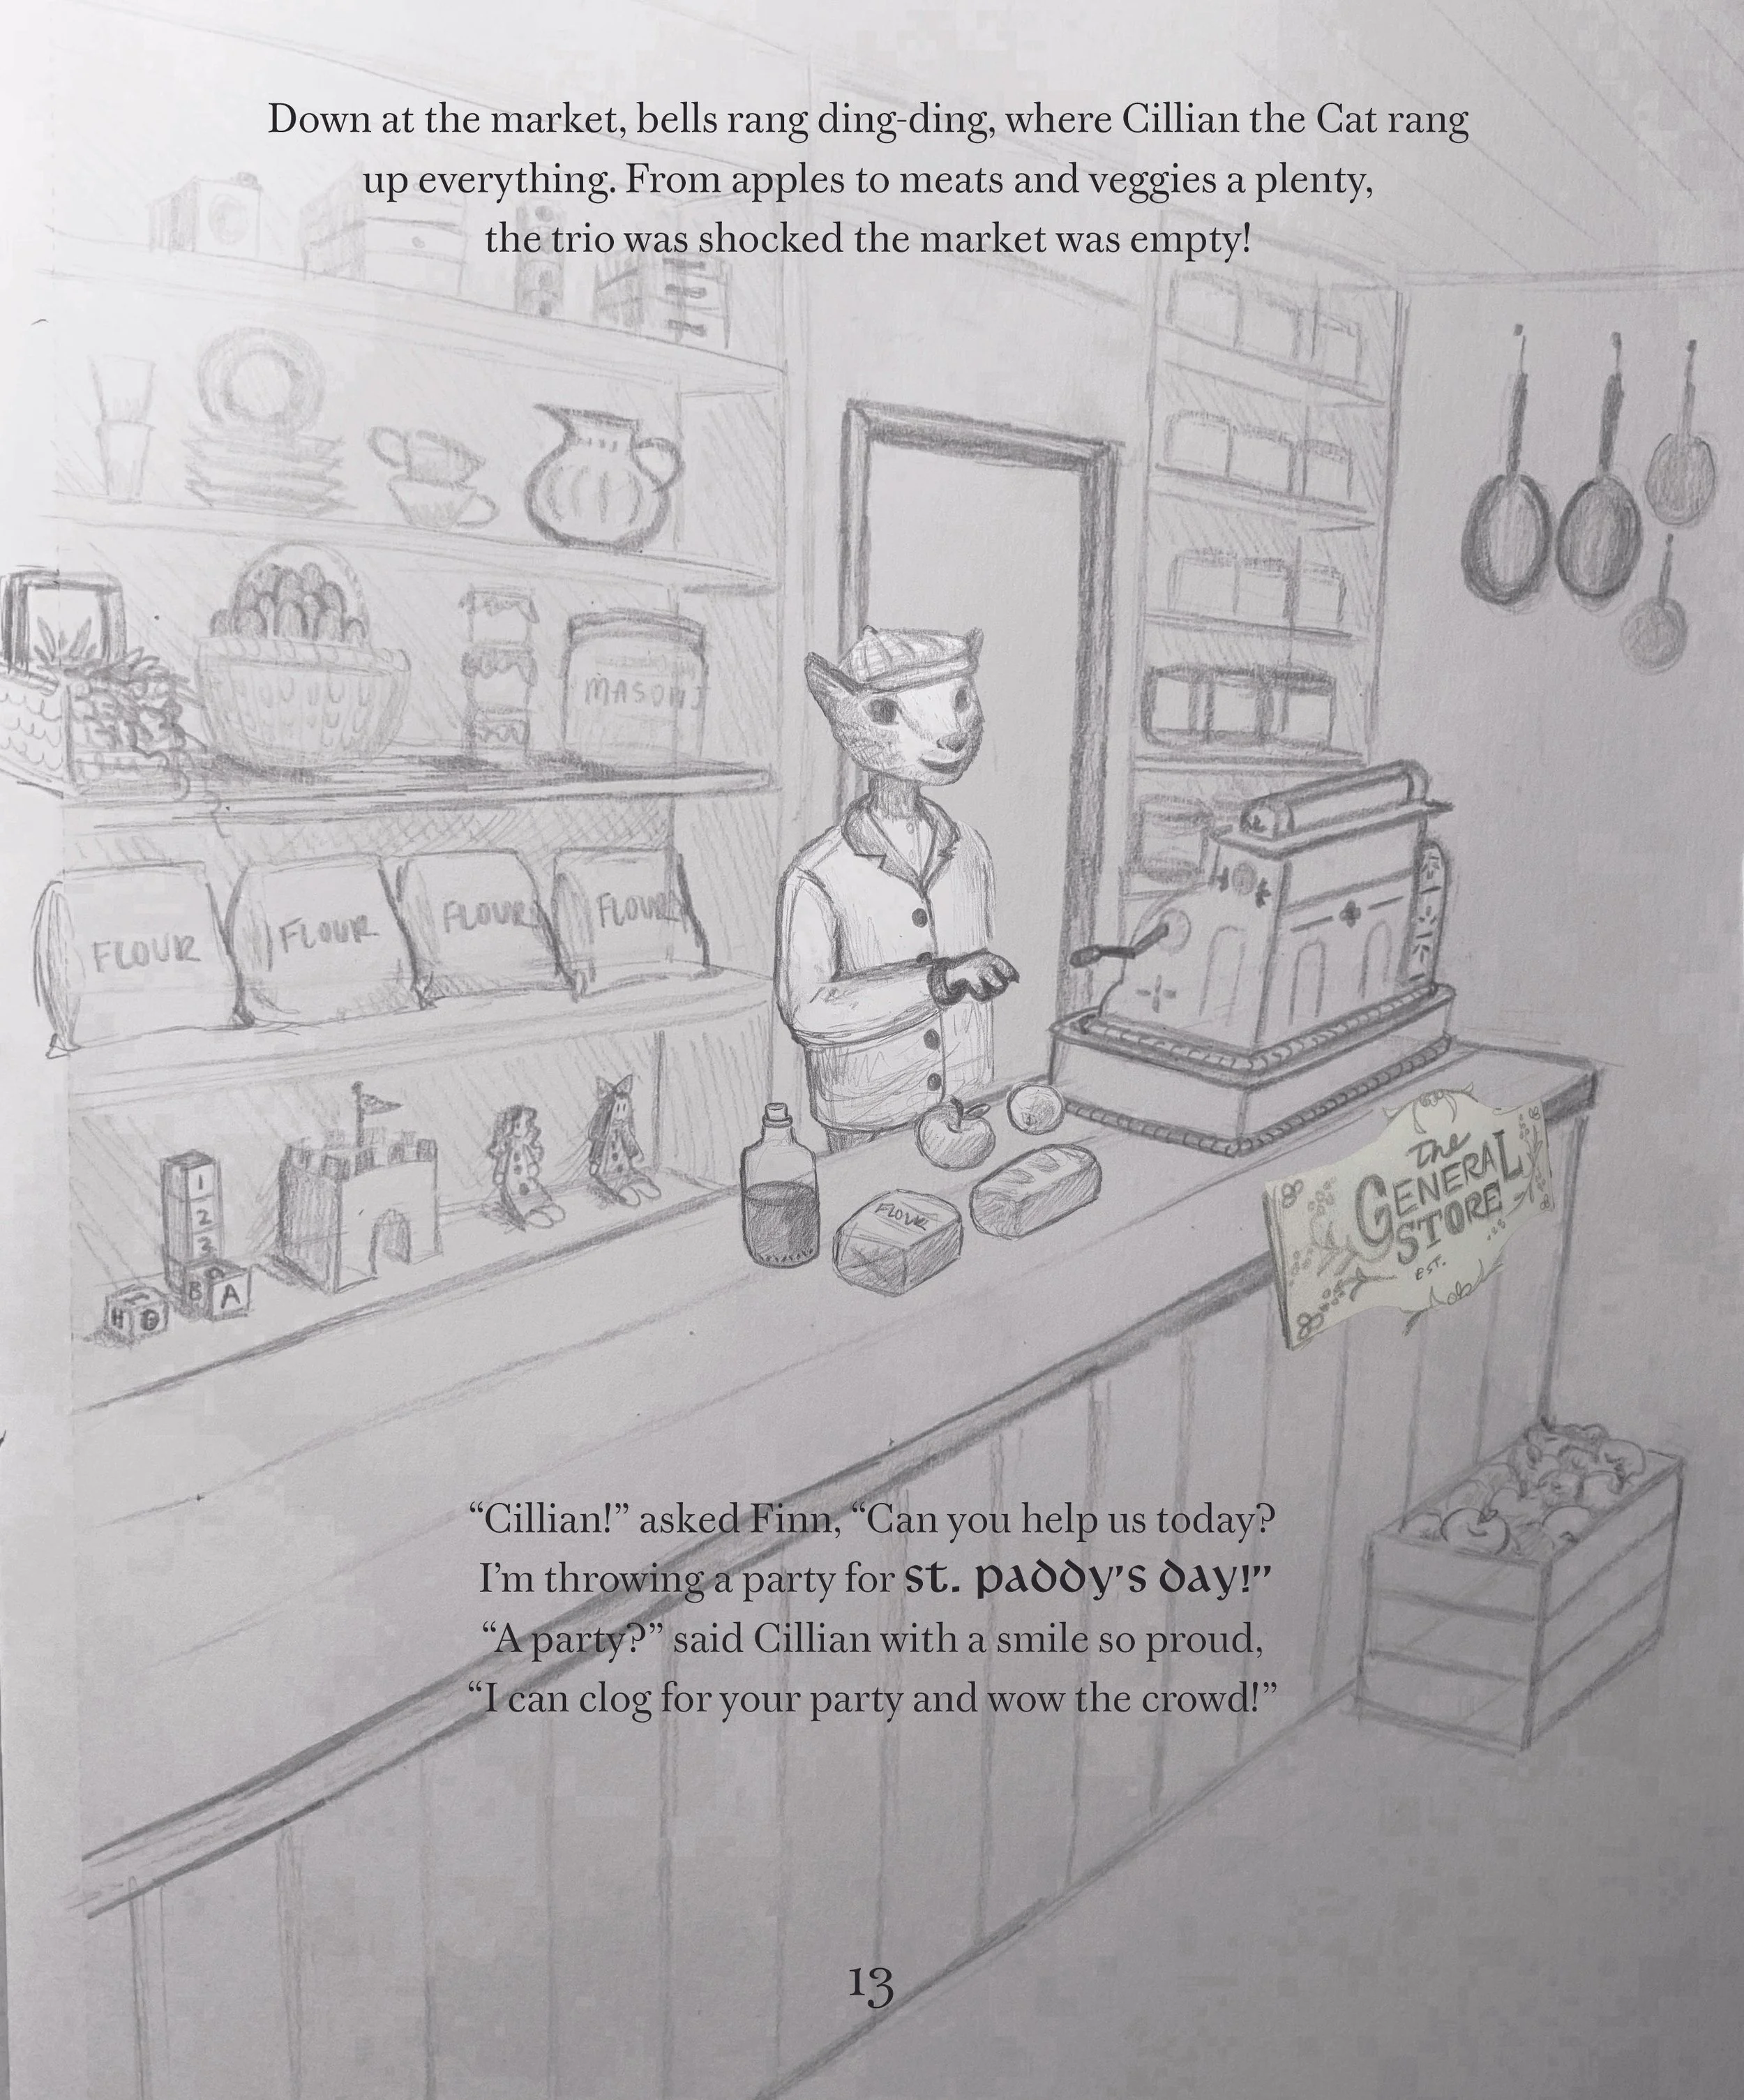 Down at the market, bells rang ding-ding, where Cillian the Cat rang
up everything. From apples to meats and veggies a plenty,
the trio was shocked the market was empty!
MASON
FLOUR
FLOUR
FLOUR
FLOUR
1
2
3
B A
H
FLOUR
The
GENERAL
STORE
EST.
“Cillian!” asked Finn, “Can you help us today?
I’m throwing a party for st. paddy’s day!”
“A party?” said Cillian with a smile so proud,
“I can clog for your party and wow the crowd!”
13